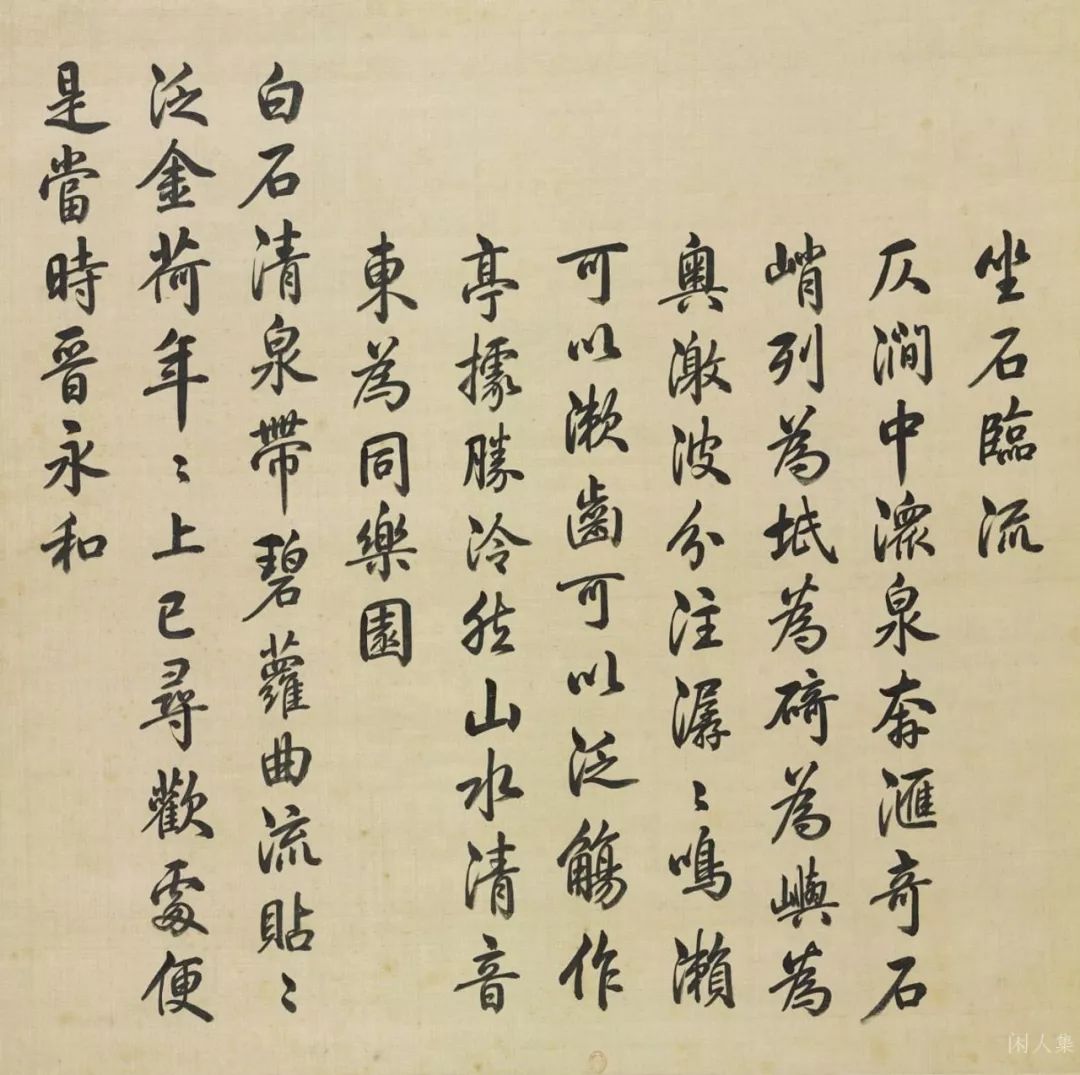 坐石臨流
仄澗中瀠泉奔滙奇石
峭列為坻為碕為嶼為
奧激波分注潺〻鳴瀨
可以漱齒可以泛觴作
亭據勝泠然山水清音
東為同樂園
白石清泉帶碧蘿曲流貼〻
泛金荷年〻上巳尋歡處便
是當時晉永和
闲人集